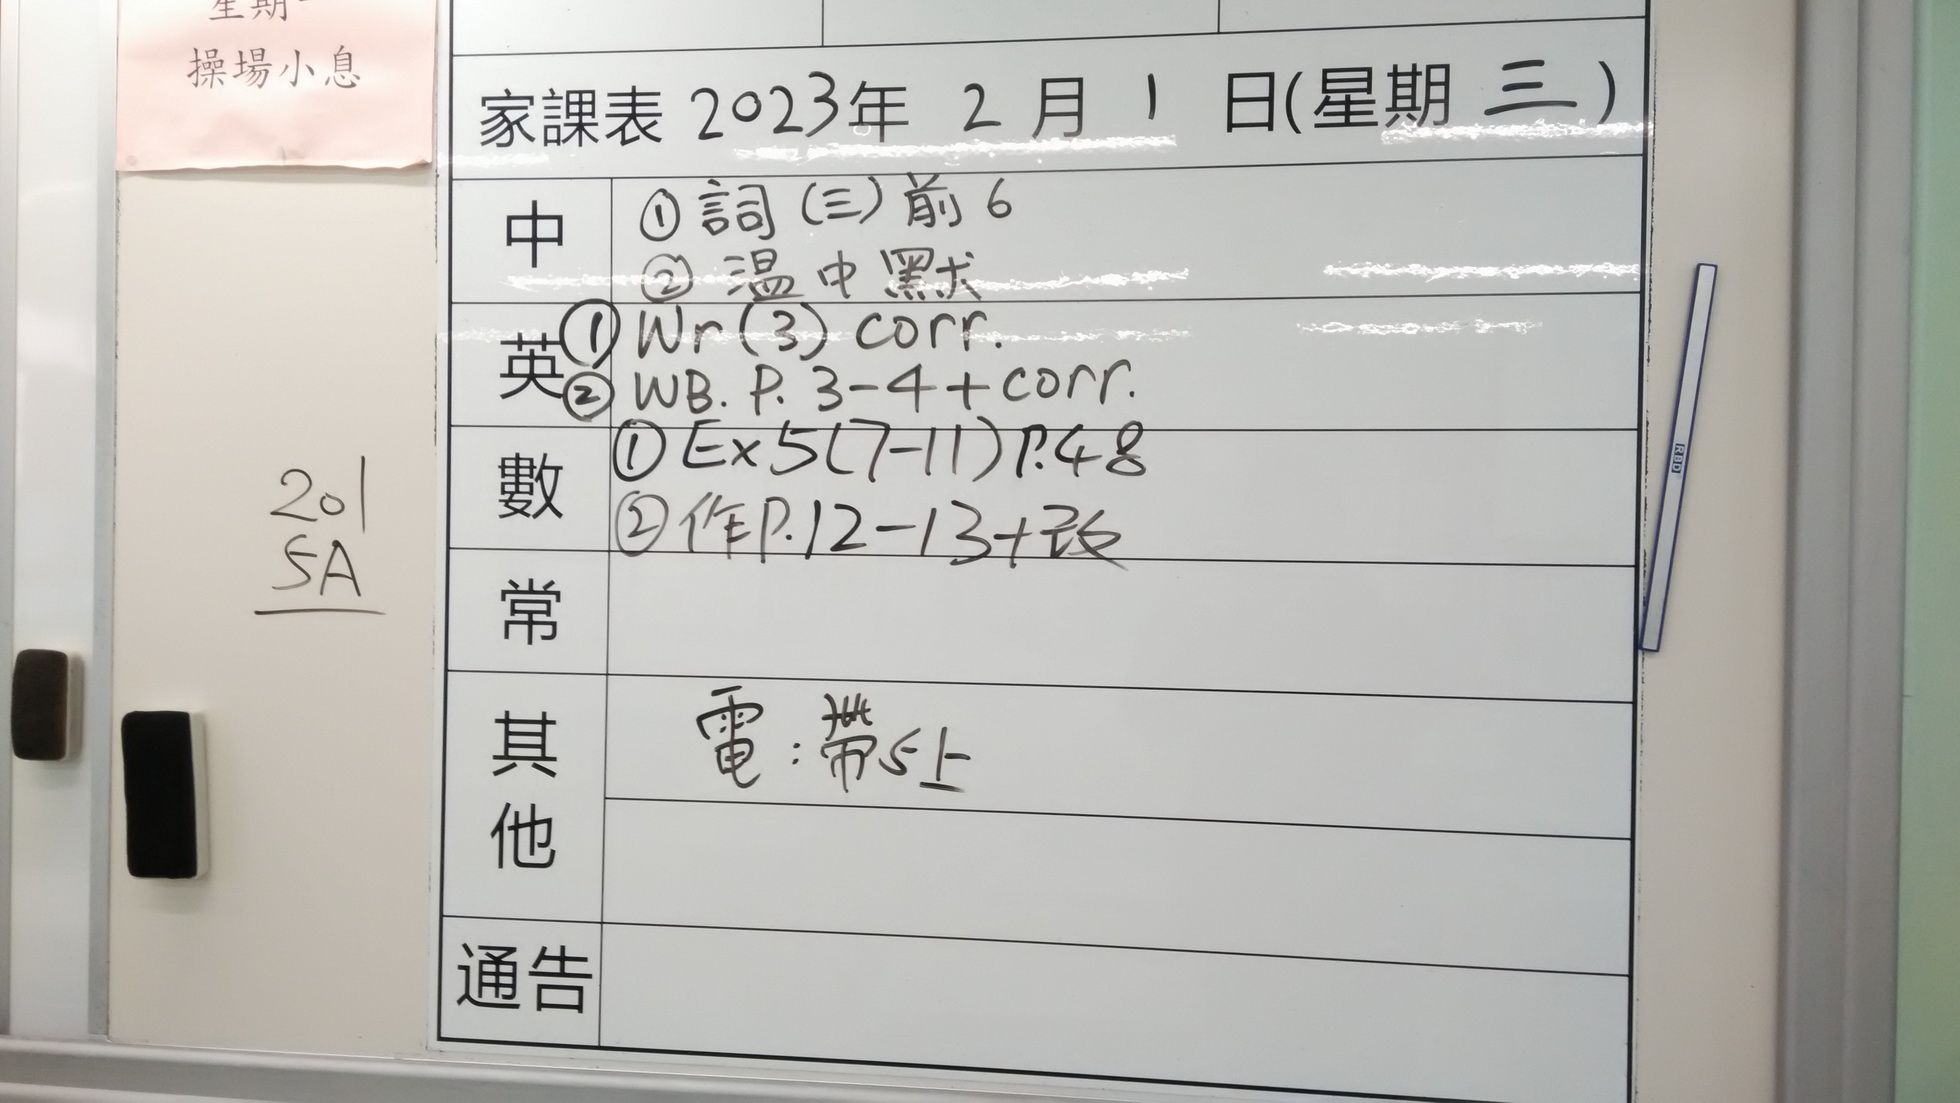 操場小息
家課表 2023年 2 月 1 日(星期 三 )
中
① 詞 (三) 前 6
② 溫 中 默
英
① Wr (3) corr.
② WB. P. 3-4 + corr.
數
① Ex5(7-11) P.48
② 作P.12-13+改
常
其他
電:帶5上
通告
201
5A
RBD